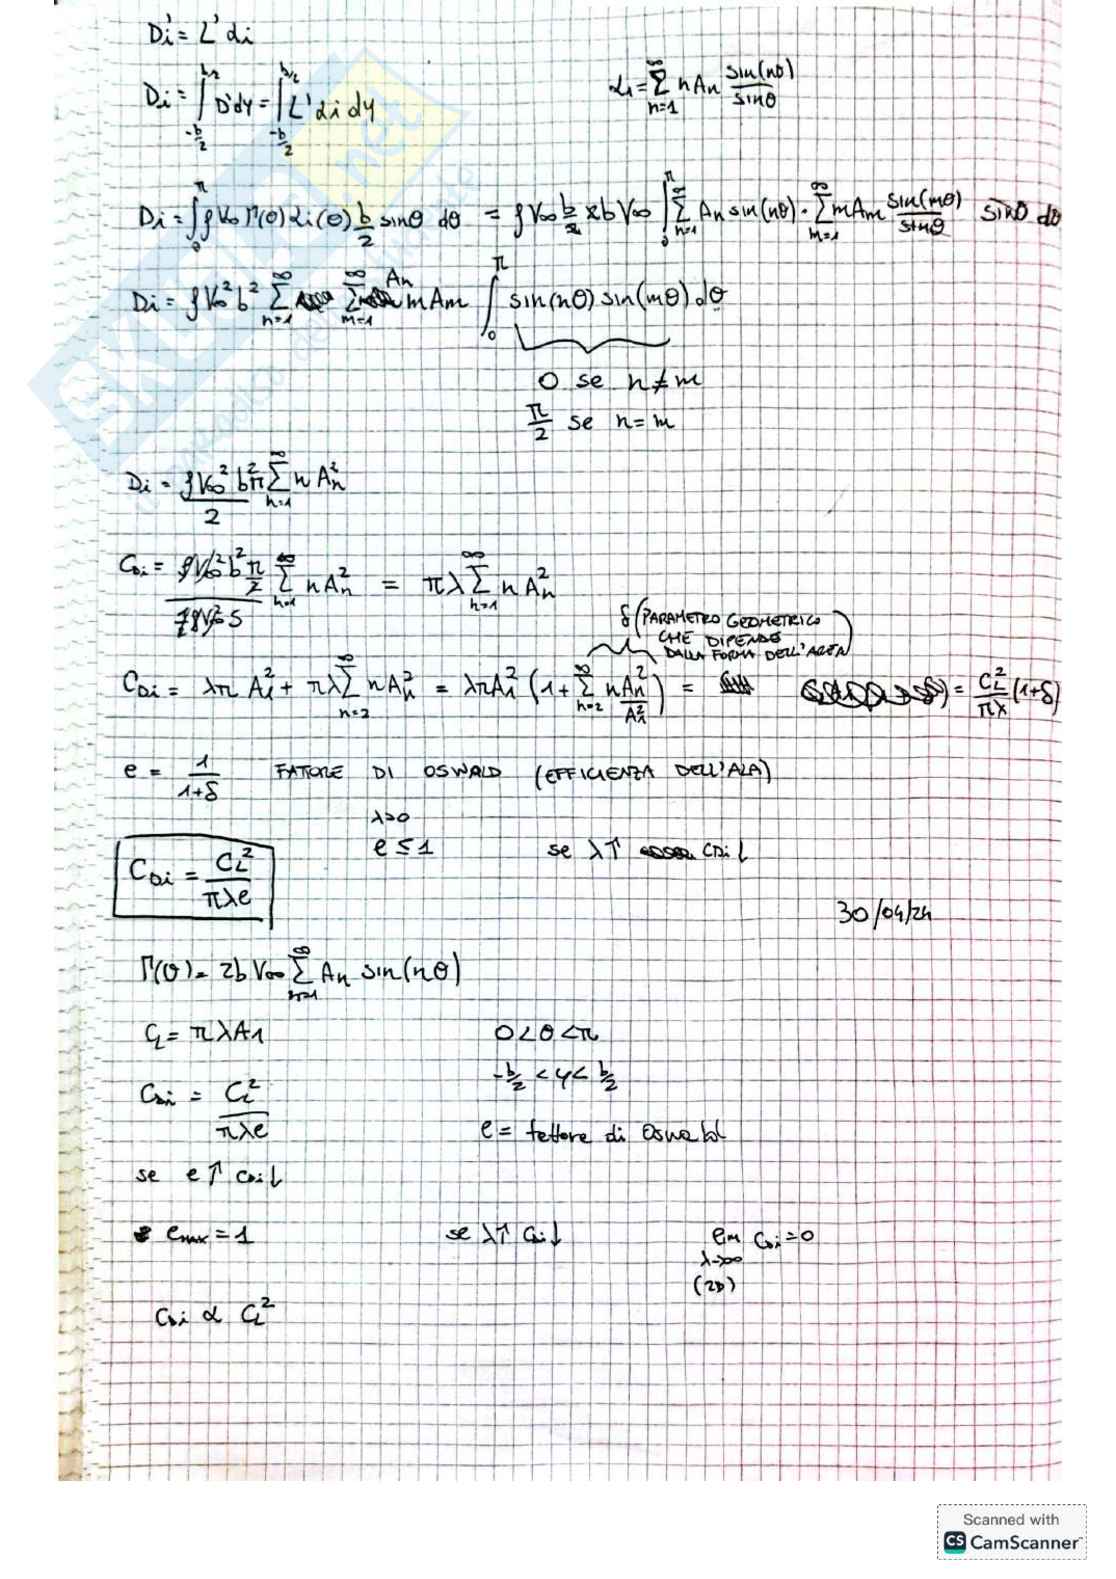 Di' = L' αi
Di = ∫_{-b/2}^{b/2} D'dy = ∫_{-b/2}^{b/2} L' αi dy
αi = Σ_{n=1}^{∞} n An sin(nθ)/sinθ
Di = ∫_0^π ρV∞ Γ(θ) αi(θ) b/2 sinθ dθ = ρV∞ b/2 2bV∞ ∫_0^π Σ_{n=1}^{∞} An sin(nθ) · Σ_{m=1}^{∞} mAm sin(mθ)/sinθ sinθ dθ
Di = ρV∞² b² Σ_{n=1}^{∞} Σ_{m=1}^{∞} An mAm ∫_0^π sin(nθ) sin(mθ) dθ
0 se n≠m
π/2 se n=m
Di = ρV∞² b²π/2 Σ_{n=1}^{∞} n An²
CDi = ρV∞² b² π/2 Σ_{n=1}^{∞} n An² / ½ρV∞² S = πλ Σ_{n=1}^{∞} n An²
δ (PARAMETRO GEOMETRICO
CHE DIPENDE
DALLA FORMA DELL'AREA)
CDi = λπ A1² + πλ Σ_{n=2}^{∞} nAn² = λπA1² (1+ Σ_{n=2}^{∞} nAn²/A1²) = CL²/πλ (1+δ)
e = 1/1+δ FATTORE DI OSWALD (EFFICIENZA DELL'ALA)
λ>0
e ≤ 1
se λ↑ CDi↓
CDi = CL²/πλe
30/04/24
Γ(θ) = 2bV∞ Σ_{n=1}^{∞} An sin(nθ)
CL = πλA1
0<θ<π
-b/2 < y < b/2
CDi = CL²/πλe
e = fattore di Oswald
se e↑ CDi↓
emax = 1
se λ↑ CDi↓
lim_{λ→∞} CDi = 0
(2D)
CDi ∝ CL²
Scanned with
CS CamScanner